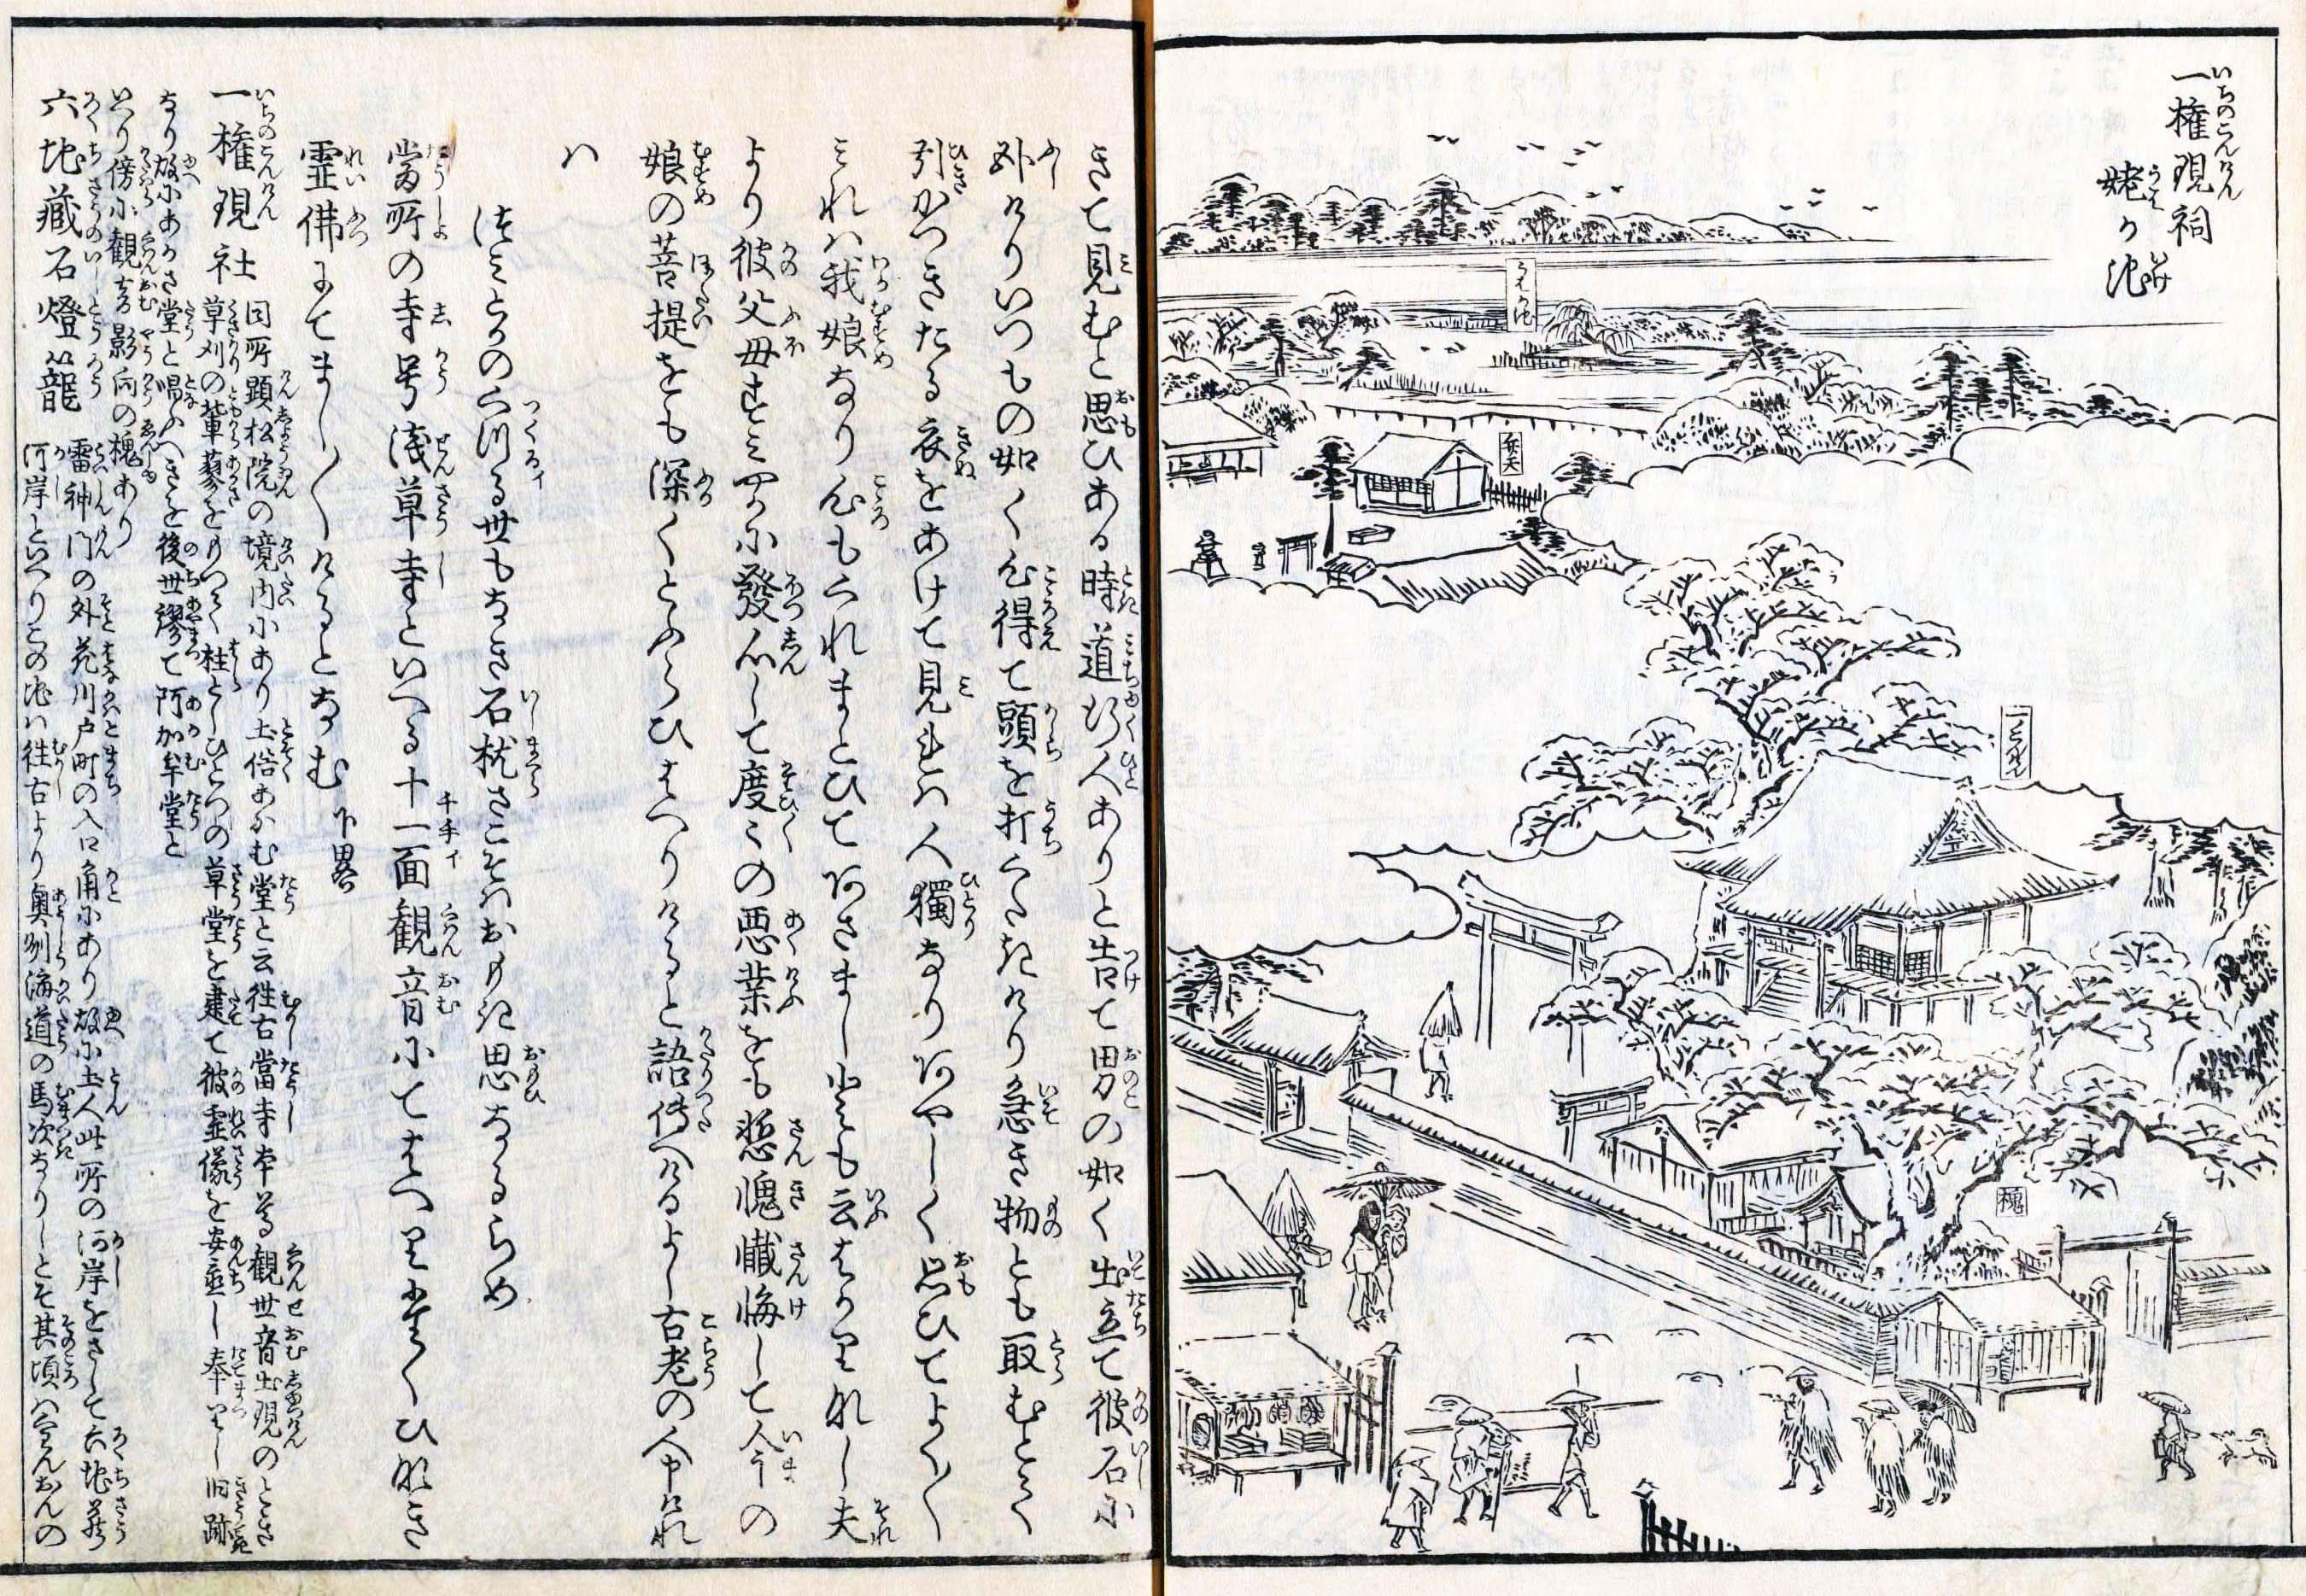 一権現祠
姥か池
うばが池
弁天
一ごんげん
槐
きて見むと思ひある時道行人ありと告て男の如く出立て彼石に
卧けりいつもの如く心得て頭を打くたきけり急き物とも取むとて
引かつきたる衣をあけて見れは人獨なりあやしく思ひてよく〳〵
みれは我娘なり心もくれまとひてあさましとも云はかりなし夫
より彼父母すみやかに發心して度々の悪業をも慙愧懴悔して今の
娘の菩提をも深くとふらひはへりけると語傳へけるよし古老の人申けれ
は
つみとかのくつる世もなき石枕さこそはおもき思なるらめ
當所の寺号浅草寺といへる十一面観音にてはへりたくひなき
霊佛にてまし〳〵けるとなむ 下畧
一権現社 同所顕松院の境内にあり土俗あかむ堂と云往古當寺本尊観世音出現のとき
草刈の輩藜をもつて柱としひとつの草堂を建て彼霊像を安座し奉りし旧跡
なり故にあかさ堂と唱ふへきを後世謬て阿加牟堂と
いへり傍に観音影向の槐あり
六地藏石燈籠 雷神門の外花川戸町の入口角にあり故に土人此所の河岸をさして六地蔵
河岸といへりこの地は往古より奥州海道の馬次なりしとそ其頃はくわんおんの